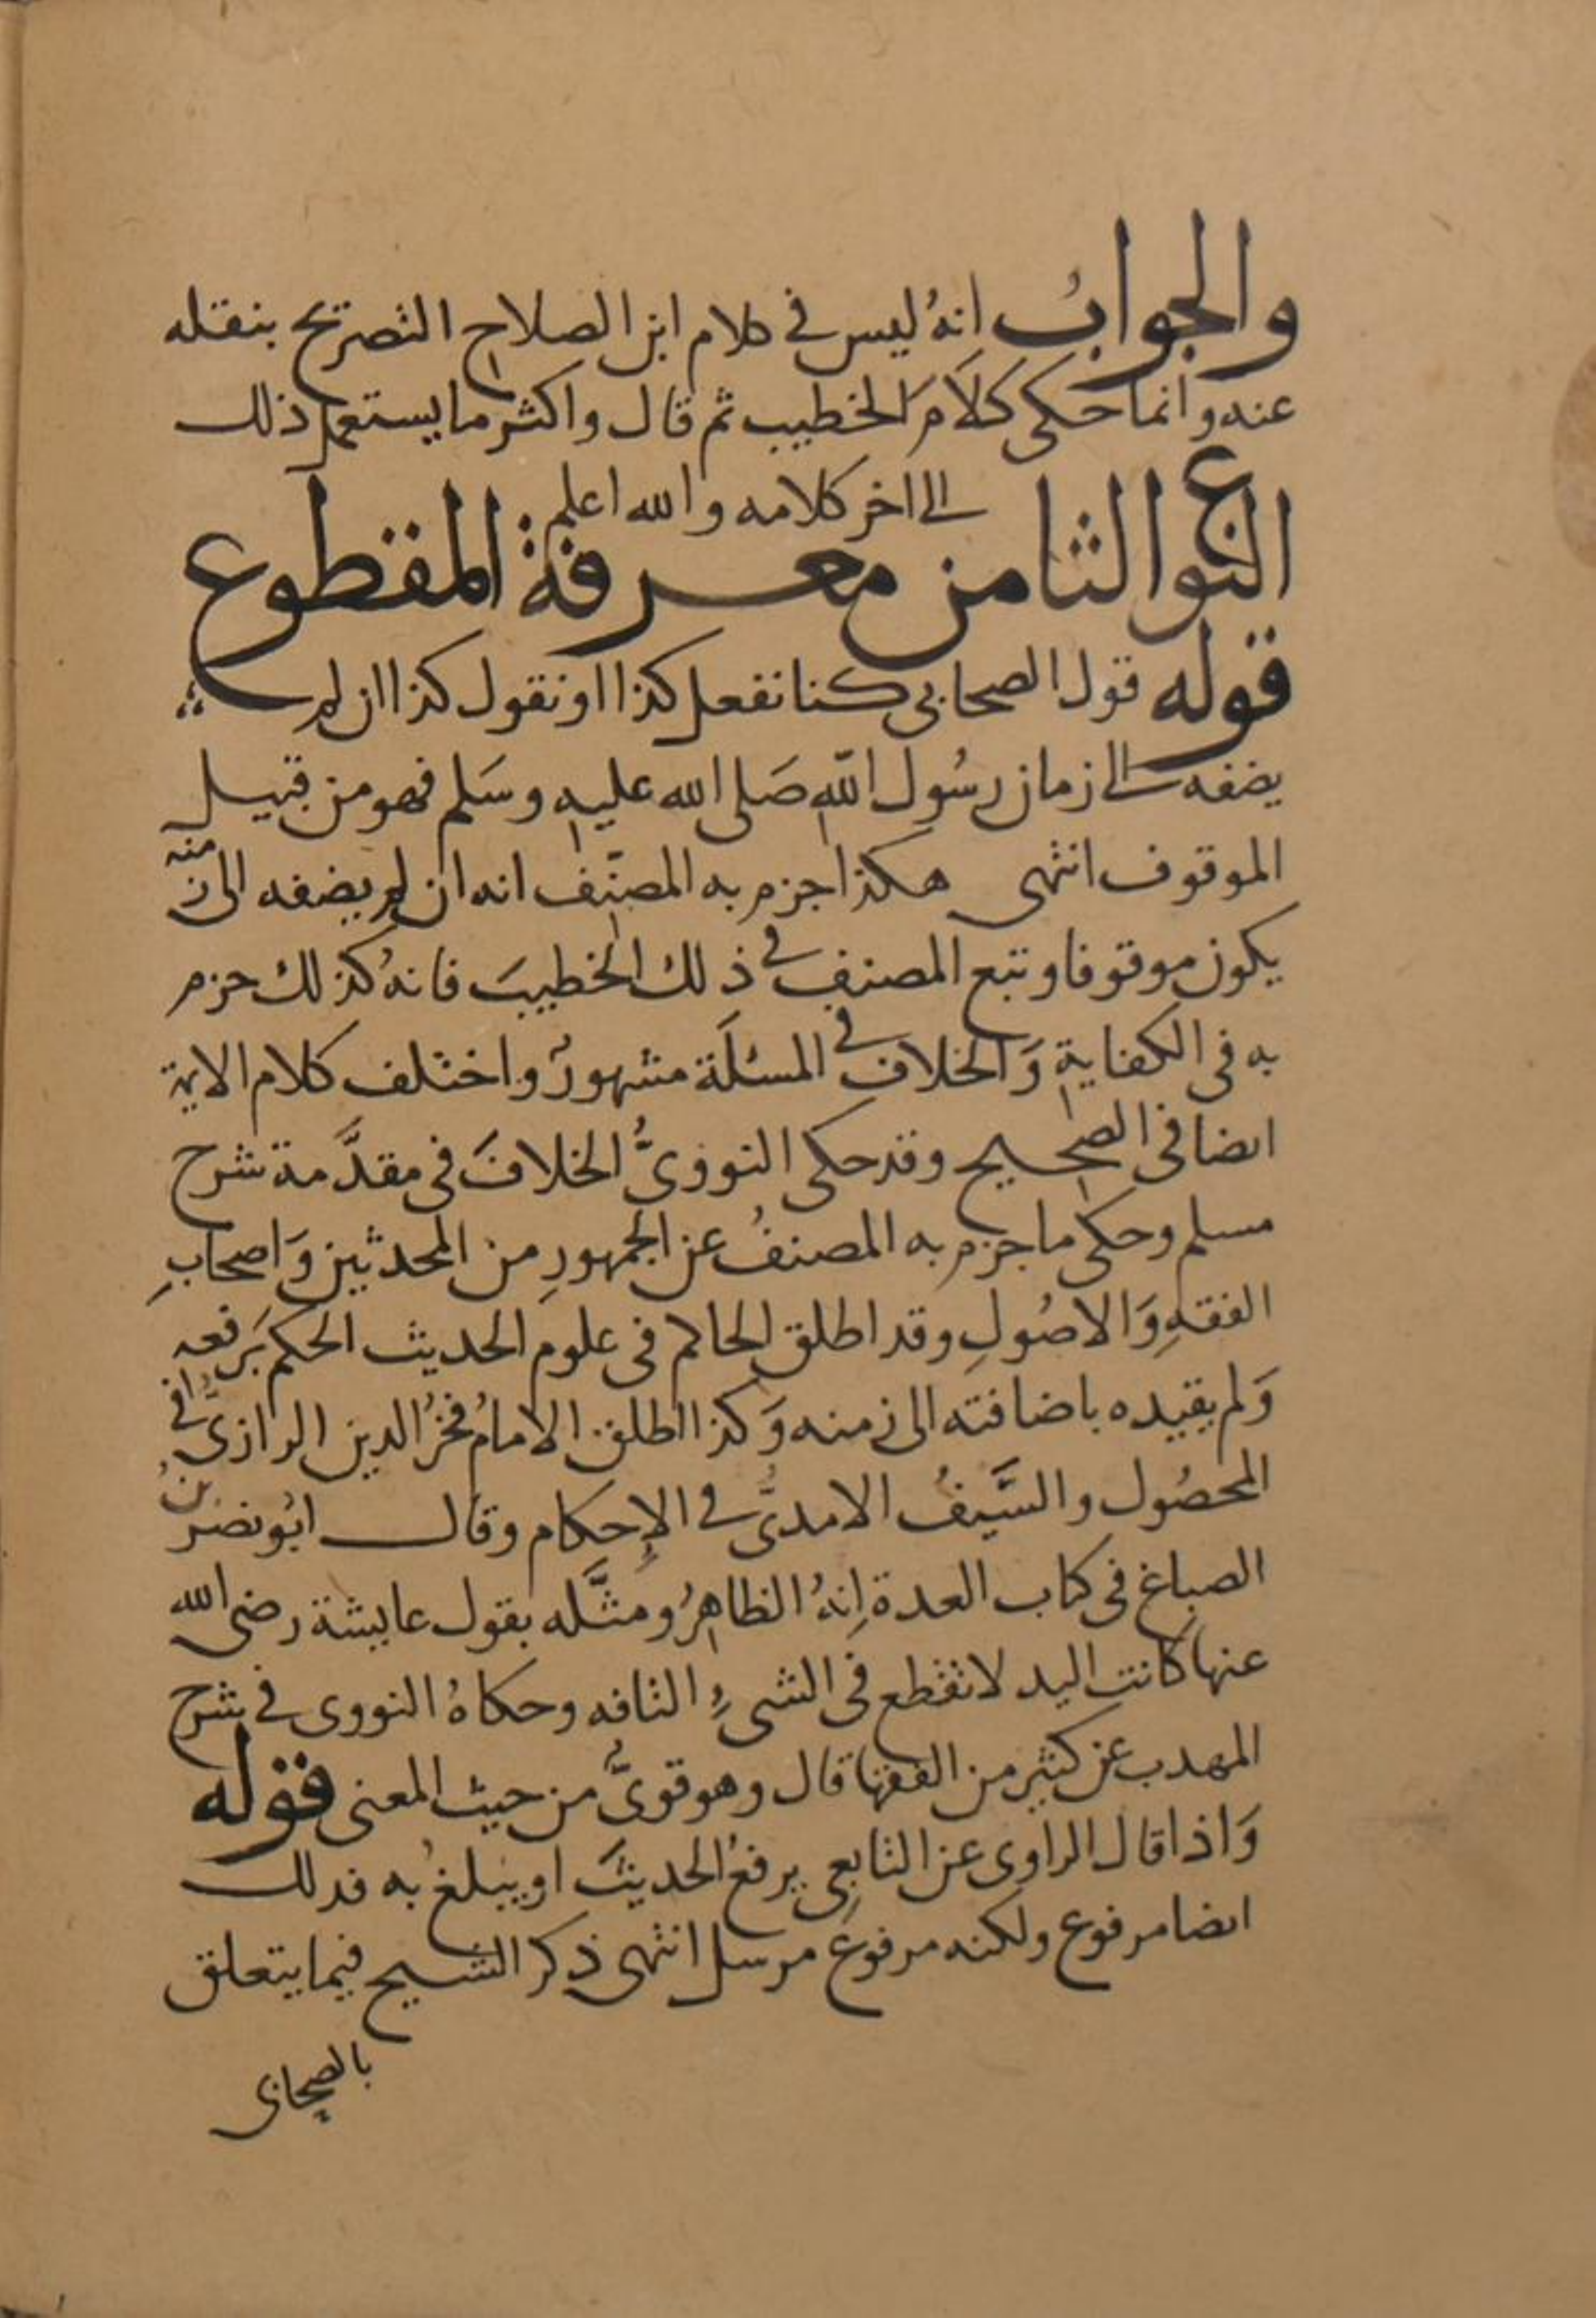 والجوابُ انهُ ليس في كلام ابن الصلاح التصريح بنقله
عنه وانما حكى كلامَ الخطيب ثم قال واكثر ما يستعمل ذلك
الى اخر كلامه والله اعلم
النوع الثامن معرفة المقطوع
قوله قول الصحابي كنا نفعل كذا او نقول كذا ان لم
يضفه الى زمان رسُول اللهِ صَلى الله عليه وسَلم فهو من قبيل
الموقوف انتهى هكذا جزم به المصنّف انه ان لم يضفه الى زمنه
يكون موقوفا وتبع المصنف في ذلك الخطيبَ فانهُ كذلك جزم
به في الكفايةِ وَالخلاف في المسئلَة مشهورٌ واختلف كلام الايمة
ايضا في الصحيح وقد حكى النوويُّ الخلافَ في مقدَّمة شرح
مسلم وحكى ما جزم به المصنفُ عن الجمهورِ من المحدثين وَاصحابِ
الفقهِ وَالاصُولِ وقد اطلق الحاكم في علوم الحديث الحكم بَرفعه
وَلم يقيده باضافته الى زمنه وَكذا اطلق الامامُ فخرُ الدين الرازيُّ في
المحصُول والسَّيفُ الامديُّ في الإحكام وقال ابُو نصر بنُ
الصباغ في كتاب العدة اِنهُ الظاهِرُ ومثَّله بقول عايشة رضي الله
عنها كانتِ اليد لا تقطع في الشيءِ التافه وحكاهُ النووى في شرح
المهدب عن كثير من الفقها قال وهو قويٌّ من حيث المعنى قوله
وَاذا قال الراوى عن التابعِي يرفعُ الحديثَ او يبلغ به فدلك
ايضا مرفوع ولكنه مرفوع مرسل انتهى ذكر الشيح فيما يتعلق
بالصحابى